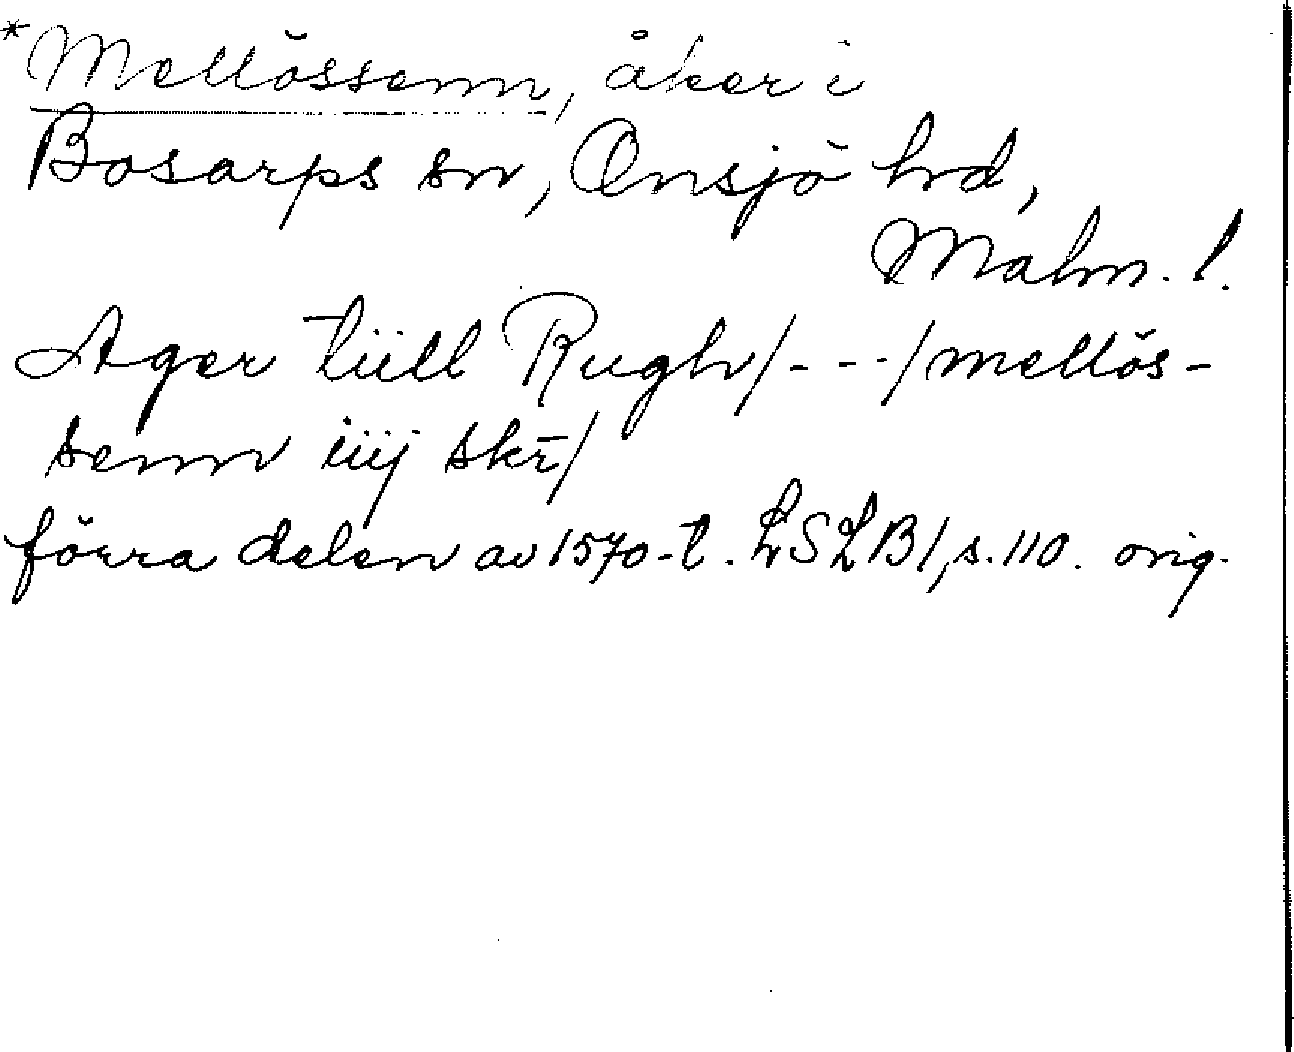 *Mellössenn, åker i
Bosarps sn, Onsjö hd,
Malm. l.
Ager tiill Rugh/---/mellös-
senn iiij skr̄/
förra delen av 1570-t. LSLB1, s. 110. orig.